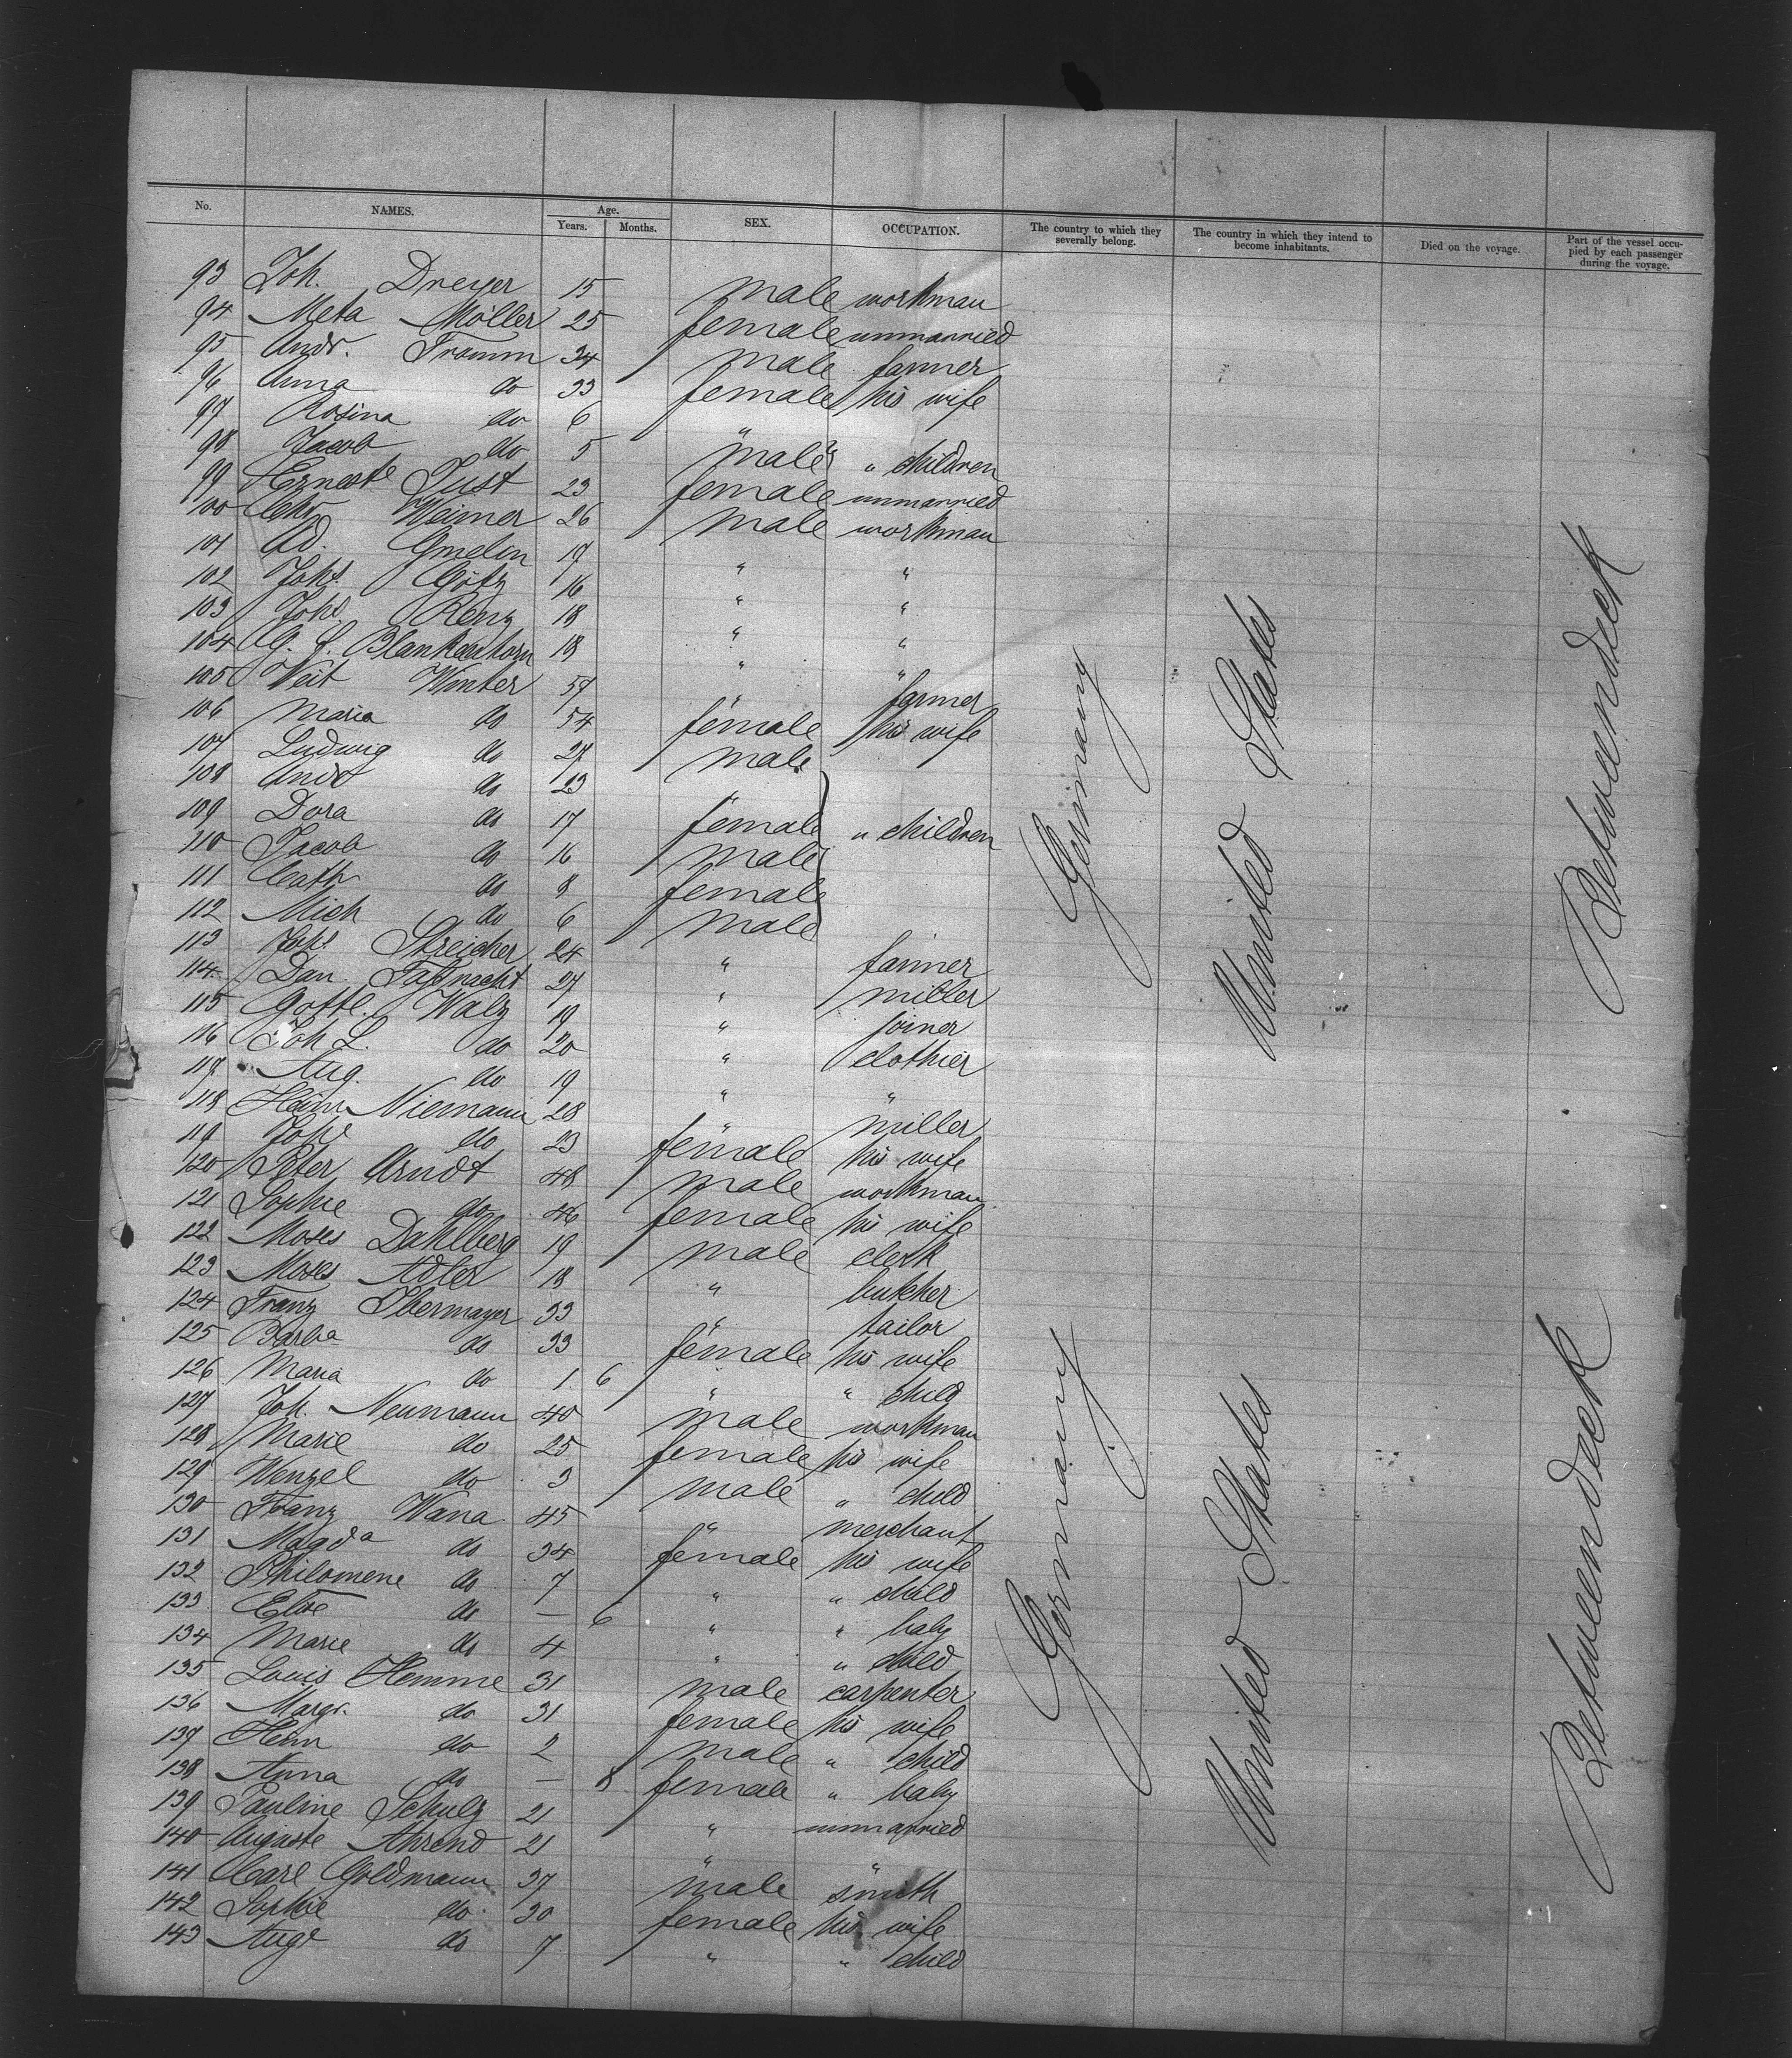 No. NAMES. Age. Years. Months. SEX. OCCUPATION. The country to which they severally belong. The country in which they intend to become inhabitants. Died on the voyage. Part of the vessel occupied by each passenger during the voyage.
93 Joh. Dreyer 15 male workman
94 Meta Möller 25 female unmarried
95 Andr. Tramm 34 male farmer
96 Anna do 33 female his wife
97 Rosina do 6 "
98 Jacob do 5 male " children
99 Erneste Just 23 female unmarried
100 Chr Weimer 26 male workman
101 Ad. Gmelin 17 " "
102 Johs. Götz 16 " "
103 Johs. Renz 18 " "
104 G. f. Blankenhorn 18 " "
105 Veit Winter 57 " farmer
106 Maria do 54 female his wife
107 Ludwig do 27 male
108 Andr do 23 "
109 Dora do 17 female " children
110 Jacob do 16 male
111 Cath do 8 female
112 Mich do 6 male
113 Johs Streicher 24 " farmer
114 Dan Faßnacht 27 " miller
115 Gottl. Walz 19 " joiner
116 Joh L. do 20 " clothier
117 Aug. do 19 " "
118 Heinr Niemann 28 " miller
119 Joh do 23 female his wife
120 Peter Arndt 48 male workman
121 Sophie do 46 female his wife
122 Moses Dahlberg 19 male clerk
123 Moses Adler 18 " butcher
124 Franz Obermayer 33 " tailor
125 Barba do 33 female his wife
126 Maria do 1 6 " " child
127 Joh. Neumann 40 male workman
128 Marie do 25 female his wife
129 Wenzel do 3 male " child
130 Franz Wana 45 " merchant
131 Magda do 34 female his wife
132 Philomene do 7 " " child
133 Elise do — 6 " " baby
134 Marie do 4 " " child
135 Louis Hemme 31 male carpenter
136 Margr. do 31 female his wife
137 Heinr do 2 male " child
138 Anna do — 8 female " baby
139 Pauline Schulz 21 " unmarried
140 Auguste Ahrend 21 " "
141 Carl Goldmann 37 male smith
142 Sophie do 30 female his wife
143 Augs do 7 " " child
Germany
United States
Betweendeck
Germany
United States
Betweendeck